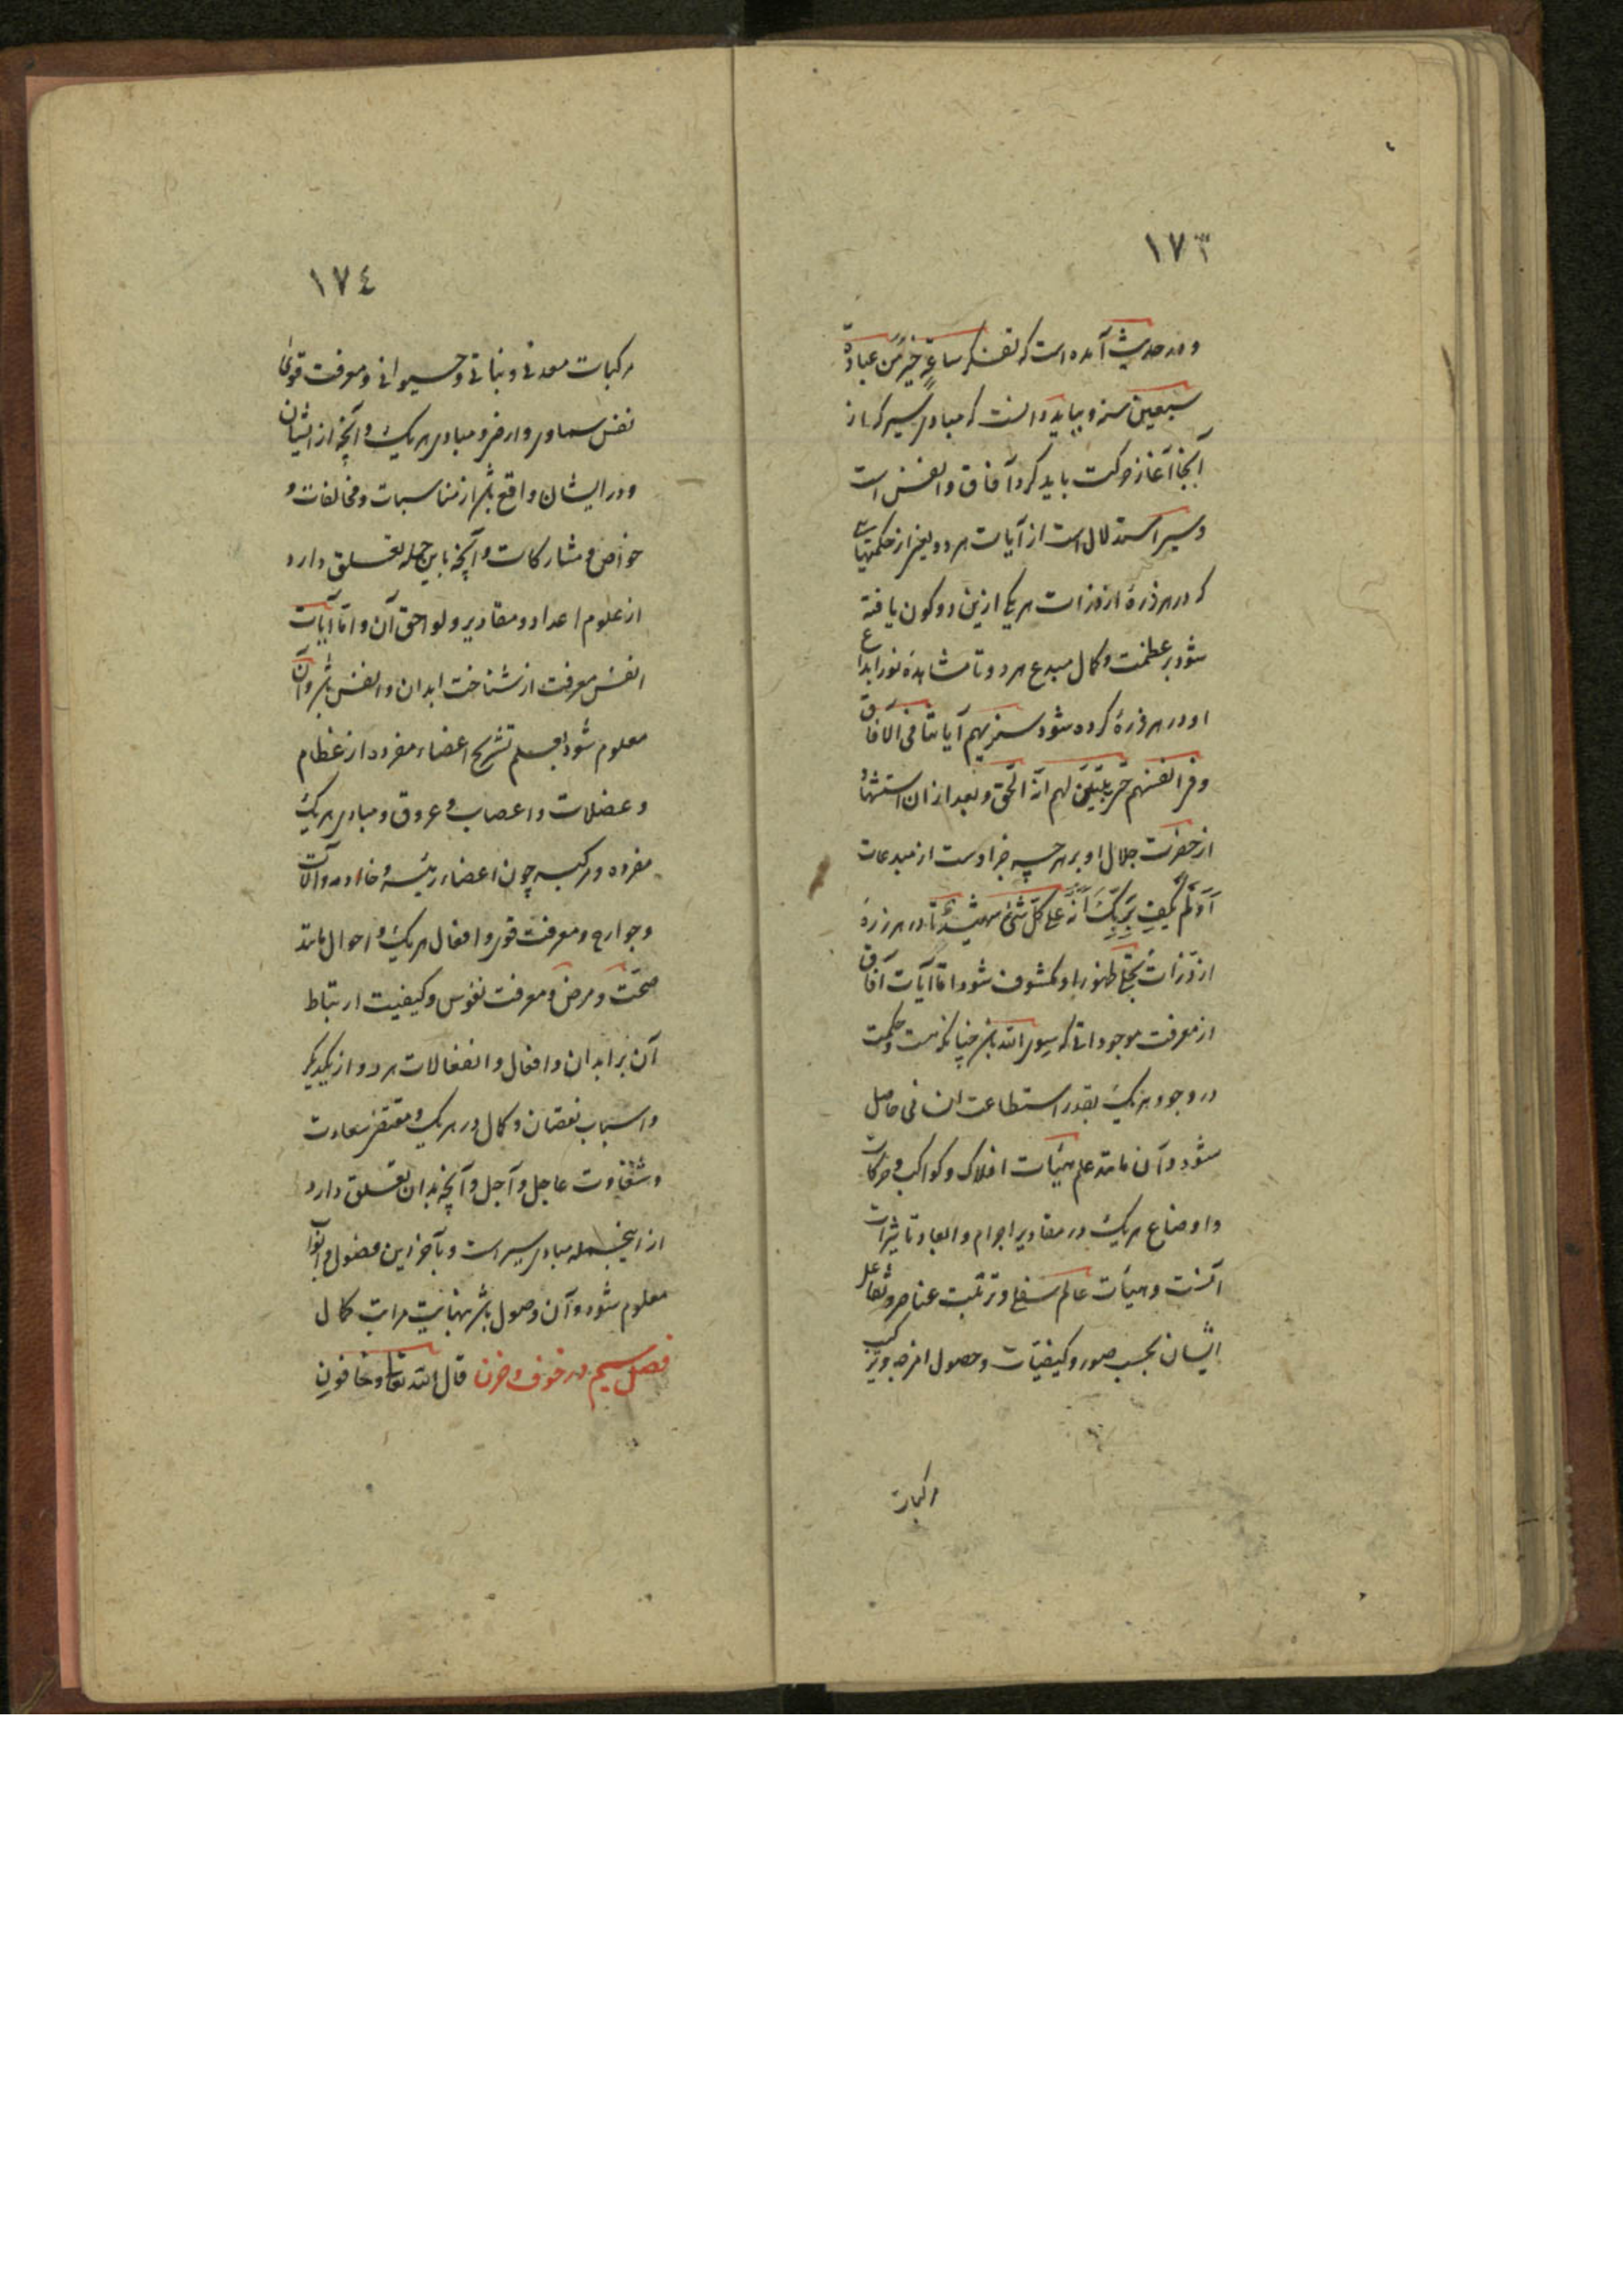 ١٧٣
و در حدیث آمده است که تفکر ساعةٍ خیرٌ من عبادة
سبعین سنه و بباید دانست که مبادی سیر که از
آنجا آغاز حرکت باید کرد آفاق و انفس است
و سیر استدلال است از آیات هر دو یعنی از حکمتهائی
که در هر ذرهٔ از ذرات هر یکی ازین دو کون یافته
شود بر عظمت و کمال مبدع هر دو تا مشاهدهٔ نور ابداع
او در هر ذرهٔ کرده شود سنریهم آیاتنا فی الآفاق
و فی انفسهم حتی یتبین لهم انه الحق و بعد از آن استشهاد
از حضرت جلال او بر هر چه جز اوست از مبدعات
اَوَلَم یکفِ بِربکَ اَنّهُ علی کل شئ شهید تا در هر ذرهٔ
از ذرات تجلی ظهور او مکشوف شود اما آیات آفاق
از معرفت موجوداتی که سوی الله باشد چنانکه هست و حکمت
در وجود هر یک بقدر استطاعت انسانی حاصل
شود و آن مانند علم هیئات افلاک و کواکب و حرکات
و اوضاع هر یک در مقادیر اجرام و ابعاد و تاثیرات
آنست و هیئات عالم سفلی و ترتیب عناصر و تفاعل
ایشان بحسب صور و کیفیات و حصول امزجه و ترکیب
مرکبات
١٧٤
مرکبات معدنی و نباتی و حیوانی و معرفت قوای
نفس سماوی و ارضی و مبادی هر یک و آنچه از ایشان
و در ایشان واقع باشد از مناسبات و مخالفات و
خواص و مشارکات و آنچه باین جمله تعلق دارد
از علوم اعداد و مقادیر و لواحق آن و اما آیات
انفس معرفت از شناخت ابدان و انفس باشد و آن
معلوم شود بعلم تشریح اعضاء مفرده از عظام
و عضلات و اعصاب و عروق و مبادی هر یک
مفرده و مرکبه چون اعضاء رئیسه و خادمه و آلات
و جوارح و معرفت قوی و افعال هر یک و احوال مانند
صحت و مرض و معرفت نفوس و کیفیت ارتباط
آن بر ابدان و افعال و انفعالات هر دو از یکدیگر
و اسباب نقصان و کمال در هر یک و مقتضی سعادت
و شقاوت عاجل و آجل و آنچه بدان تعلق دارد
از اینجمله مبادی سیر است و بآخر این فصول و ابواب
معلوم شود و آن وصول باشد بنهایت مراتب کمال
فصل سیم در خوف و حزن قال الله تعالی و خافون